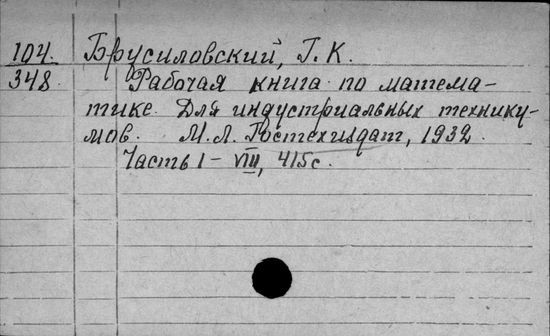 104. Брусиловский, Г. К.
348. Рабочая книга по матема-
тике. Для индустриальных технику-
мов. М.Л. Гостехиздат, 1932.
Часть 1 - VIII, 415 с.